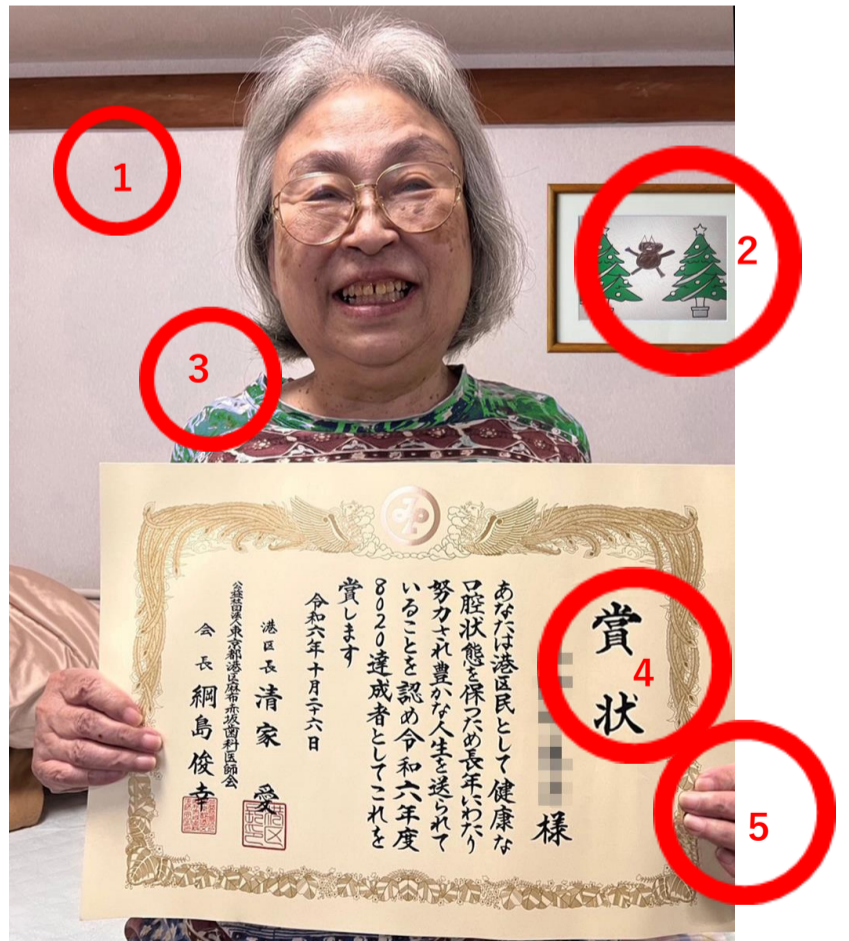 1
2
3
4
5
賞状
様
あなたは港区民として健康な
口腔状態を保つため長年にわたり
努力され豊かな人生を送られて
いることを認め令和六年度
8020達成者としてこれを
賞します
令和六年十月二十六日
港区長 清家 愛
公益社団法人東京都港区麻布赤坂歯科医師会
会長 綱島俊幸